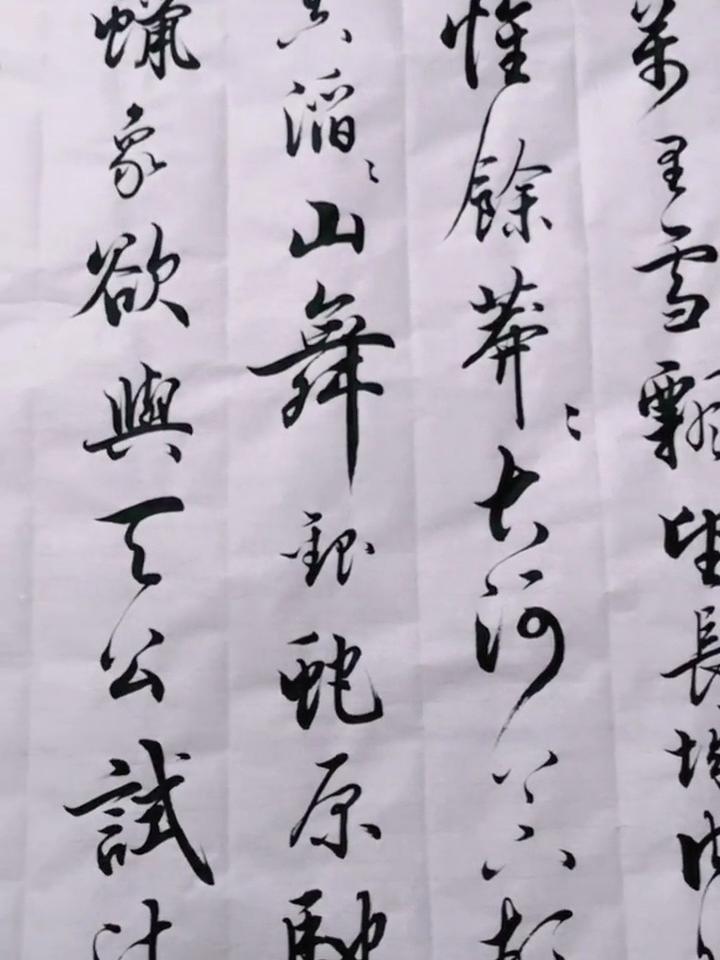 萬里雪飄望長城内
惟餘莽〻大河上下頓
失滔〻山舞銀蛇原馳
蠟象欲與天公試比